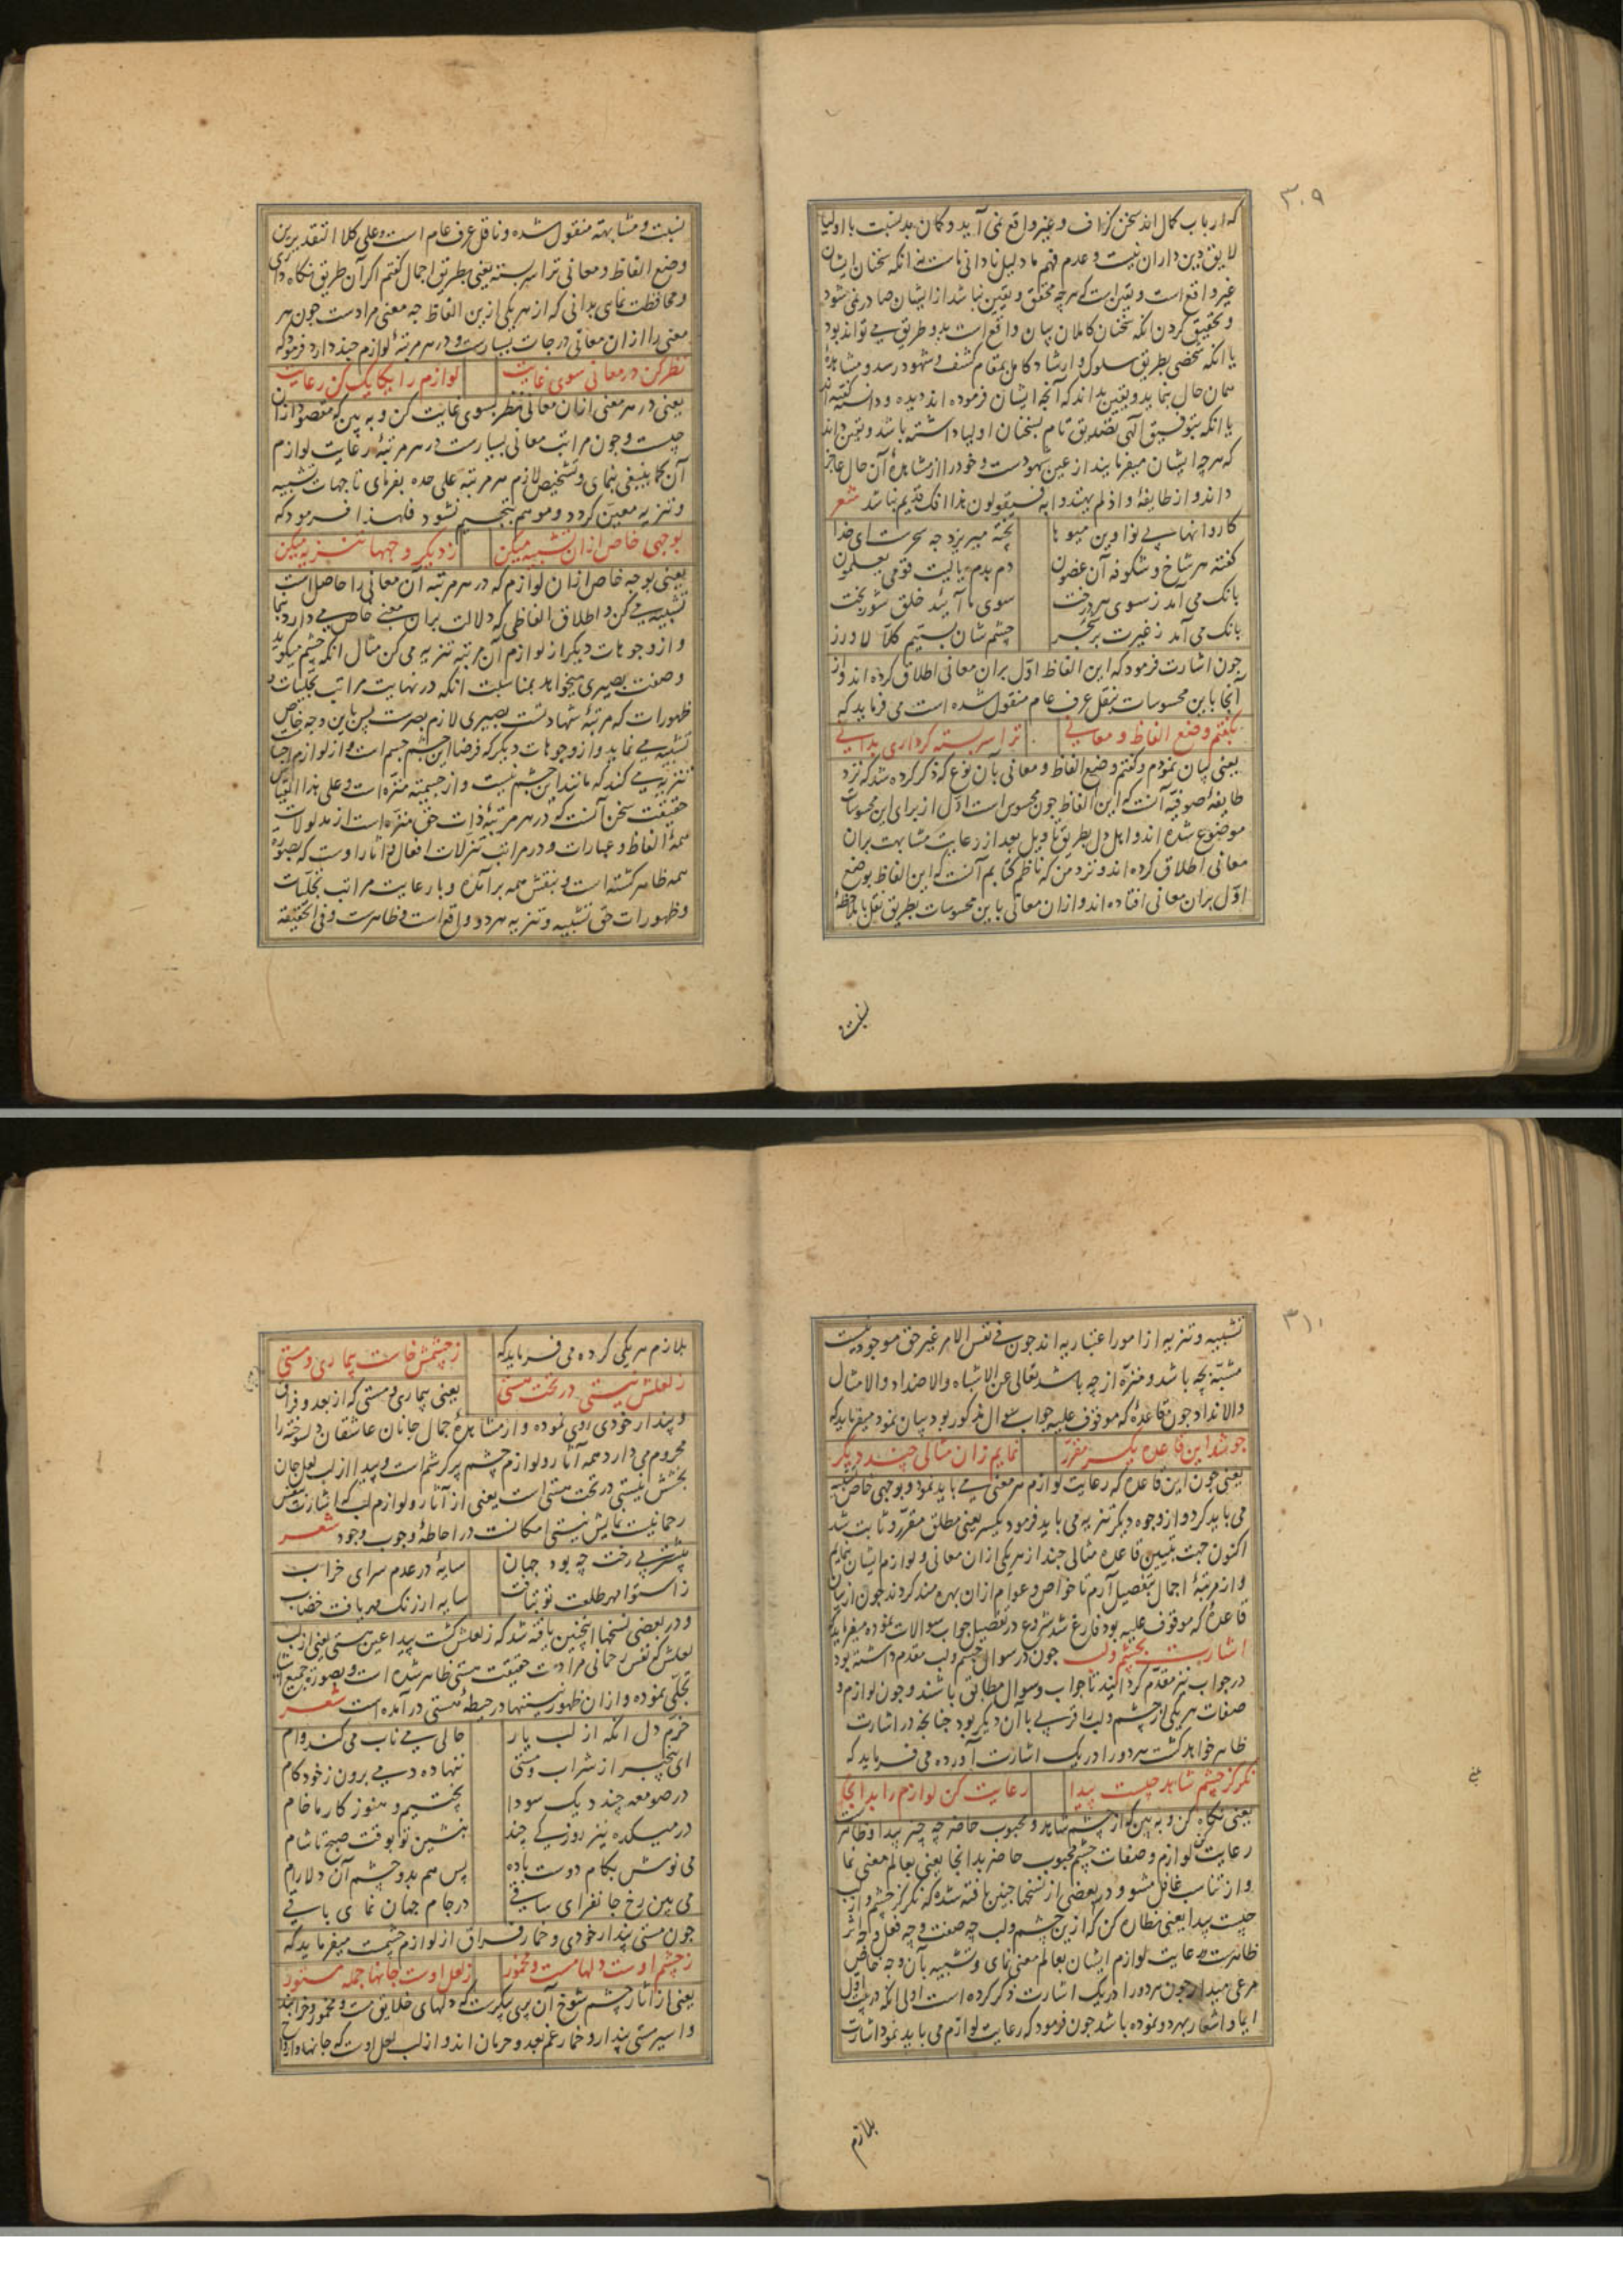 ۳۰۹
که ارباب کمال اند سخن گزاف و غیر واقع نمی آید و گمان بد نسبت با اولیا
لایق دین داران نیست و عدم فهم ما دلیل نادانی ماست نه آنکه سخنان ایشان
غیر واقع است و یقین است که هرچه محقق و یقین نباشد از ایشان صادر نمی شود
و تحقیق کردن آنکه سخنان کاملان بیان واقع است بدو طریق می تواند بود
یا آنکه شخصی بطریق سلوک و ارشاد کامل بمقام کشف و شهود رسد و مشاهدهٔ
همان حال نماید و یقین بداند که آنچه ایشان فرموده اند دیده و دانسته گفته اند
یا آنکه بتوفیق الهی تصدیق تام بسخنان اولیا داشته باشد و یقین داند
که هرچه ایشان میفرمایند از عین شهودست و خود را از مشاهدهٔ آن حال عاجز
داند و از طایفهٔ و اذ لم یهتدوا به فسیقولون هذا افک قدیم نباشد شعر
کاروانها بی نوا وین میوها
پخته میریزد چه سحرست ای خدا
گفته هر شاخ و شکوفه آن غصون
دم بدم یا لیت قومی یعلمون
بانگ می آمد ز سوی هر درخت
سوی ما آیید خلق شوربخت
بانگ می آمد ز غیرت بر شجر
چشم شان بستیم کلا لا وزر
چون اشارت فرمود که این الفاظ اول بران معانی اطلاق کرده اند و از
آنجا باین محسوسات بنقل عرف عام منقول شده است می فرماید که
بگفتم وضع الفاظ و معانی
ترا سربسته گر داری بدانی
یعنی بیان نمودم و گفتم وضع الفاظ و معانی بآن نوع که ذکر کرده شد که نزد
طایفهٔ صوفیه آنست که این الفاظ چون محسوس است اول از برای این محسوسات
موضوع شده اند و اهل دل بطریق تاویل بعد از رعایت مشابهت بران
معانی اطلاق کرده اند و نزد من که ناظم کتابم آنست که این الفاظ بوضع
اول بران معانی افتاده اند و از ان معانی باین محسوسات بطریق نقل باملاحظهٔ
نسبت و
نسبت و مشابهته منقول شده و ناقل عرف عام است و علی کلا التقدیرین
وضع الفاظ و معانی ترا سربسته یعنی بطریق اجمال گفتم اگر آن طریق نگاه داری
و محافظت نمای بدانی که از هر یکی ازین الفاظ چه معنی مرادست چون هر
معنی را از ان معانی درجات بسیارست و در هر مرتبهٔ لوازم چند دارد فرمود که
نظر کن در معانی سوی غایت
لوازم را یکایک کن رعایت
یعنی در هر معنی از ان معانی نظر بسوی غایت کن و به بین که مقصود از ان
چیست و چون مراتب معانی بسیارست در هر مرتبهٔ رعایت لوازم
آن کما ینبغی بنمای و تشخیص لازم هر مرتبه علی حده بفرمای تا جهات تشبیه
و تنزیه معین گردد و موهم تجسیم نشود فلهذا فرمود که
بوجهی خاص ازان تشبیه میکن
ز دیگر وجهها تنزیه میکن
یعنی بوجه خاص از ان لوازم که در هر مرتبه آن معانی را حاصل است
تشبیه می کن و اطلاق الفاظی که دلالت بران معنی خاص می دارد بنما
و از وجوهات دیگر از لوازم آن مرتبه تنزیه می کن مثال آنکه چشم میگوید
و صفت بصیری میخواهد بمناسبت آنکه در نهایت مراتب تجلیات و
ظهورات که مرتبهٔ شهادتست بصیری لازم بصرست پس باین وجه خاص
تشبیه می نماید و از وجوهات دیگر که فرضا این چشم جسم است و از لوازم اجسام
تنزیه می کند که مانند این چشم نیست و از جسمیته منزه است و علی هذا القیاس
حقیقت سخن آنست که در هر مرتبهٔ ذات حق منزه است از مدلولات
همهٔ الفاظ و عبارات و در مراتب تنزلات افعال و آثار اوست که بصورة
همه ظاهر گشته است و بنقش همه برآمده و با رعایت مراتب تجلیات
و ظهورات حق تشبیه و تنزیه هر دو واقع است و ظاهرست و فی الحقیقة
۳۱۰
تشبیه و تنزیه از امور اعتباریه اند چون فی نفس الامر غیر حق موجود نیست
مشبه بچه باشد و منزه از چه باشد تعالی عن الاشباه والاضداد والامثال
والانداد چون قاعدهٔ که موقوف علیه جواب سوال مذکور بود بیان نمود میفرماید که
چو شد این قاعده یکسر مقرر
نمایم زان مثالی چند دیگر
یعنی چون این قاعده که رعایت لوازم هر معنی می باید نمود و بوجهی خاص تشبیه
می باید کرد و از وجوه دیگر تنزیه می باید فرمود یکسر یعنی مطلق مقرر و ثابت شد
اکنون جهت تبیین قاعده مثالی چند از هر یکی از ان معانی و لوازم ایشان بنمایم
و از مرتبهٔ اجمال بتفصیل آرم تا خواص و عوام ازان بهره مند گردند چون از بیان
قاعدهٔ که موقوف علیه بود فارغ شد شروع در تفصیل جواب سوالات نموده میفرماید که
اشارت بچشم و لب چون در سوال چشم و لب مقدم داشته بود
در جواب نیز مقدم گردانید تا جواب و سوال مطابق باشند و چون لوازم و
صفات هر یکی از چشم و لب را قربی با آن دیگر بود چنانچه در اشارت
ظاهر خواهد گشت هر دو را در یک اشارت آورده می فرماید که
نگر کز چشم شاهد چیست پیدا
رعایت کن لوازم را بدانجا
یعنی نگاه کن و به بین که از چشم شاهد و محبوب حاضر چه چیز پیدا و ظاهرست
رعایت کن لوازم و صفات چشم محبوب حاضر بدانجا یعنی بعالم معنی نما
و از تناسب غافل مشو و در بعضی از نسخها چنین یافته شده که نگر کز چشم و از لب
چیست پیدا یعنی نظاره کن که ازین چشم و لب چه صفت و چه فعل و چه اثر
ظاهرست رعایت لوازم ایشان بعالم معنی نمای و تشبیه بآن وجه خاص
مرعی میدار چون هر دو را در یک اشارت ذکر کرده است اولی آنکه در بیت اول
ایما و اشعار بهر دو نموده باشد چون فرمود که رعایت لوازم می باید نمود اشارت
بلازم
بلازم هر یکی کرده می فرماید که
ز چشمش خاست بیماری و مستی
ز لعلش نیستی در تحت هستی
یعنی بیماری و مستی که از بعد و فراق
و پندار خودی روی نموده و از مشاهدهٔ جمال جانان عاشقان دلسوخته را
محروم می دارد همه آثار و لوازم چشم پر کرشم است و پیدا از لب لعل جان
بخشش نیستی در تحت هستی است یعنی از آثار و لوازم لب که اشارت بنفس
رحمانیت نمایش نیستی امکانست در احاطهٔ وجوب وجود شعر
پیشتر بی رخت چه بود جهان
سایهٔ در عدم سرای خراب
ز استوا مهر طلعت تو بتافت
سایه از رنگ مهر یافت خضاب
و در بعضی نسخها اینچنین یافته شد که ز لعلش گشت پیدا عین هستی یعنی از لب
لعلش که نفس رحمانی مرادست حقیقت هستی ظاهر شده است و بصورة جمیع اشیا
تجلی نموده و از ان ظهور نیستیها در حیطهٔ هستی در آمده است شعر
خرم دل آنکه از لب یار
حالی می ناب می کند وام
ای بیخبر از شراب و مستی
ننهاده دمی برون ز خود گام
در صومعه چند دیگ سودا
پختیم و هنوز کار ما خام
در میکده نیز روزکی چند
بنشین تو بوقت صبح تا شام
می نوش بکام دوست باده
پس هم بدو چشم آن دلارام
می بین رخ جانفزای ساقی
در جام جهان نمای باقی
چون مستی پندار خودی و خمار فراق از لوازم چشمست میفرماید که
ز چشم اوست دلها مست و مخمور
ز لعل اوست جانها جمله مستور
یعنی از آثار چشم شوخ آن پری پیکرست که دلهای خلایق مست و مخمور و خرابند
و اسیر مستی پندار و خمار غم بعد و حرمان اند و از لب لعل اوست که جانها و ارواح